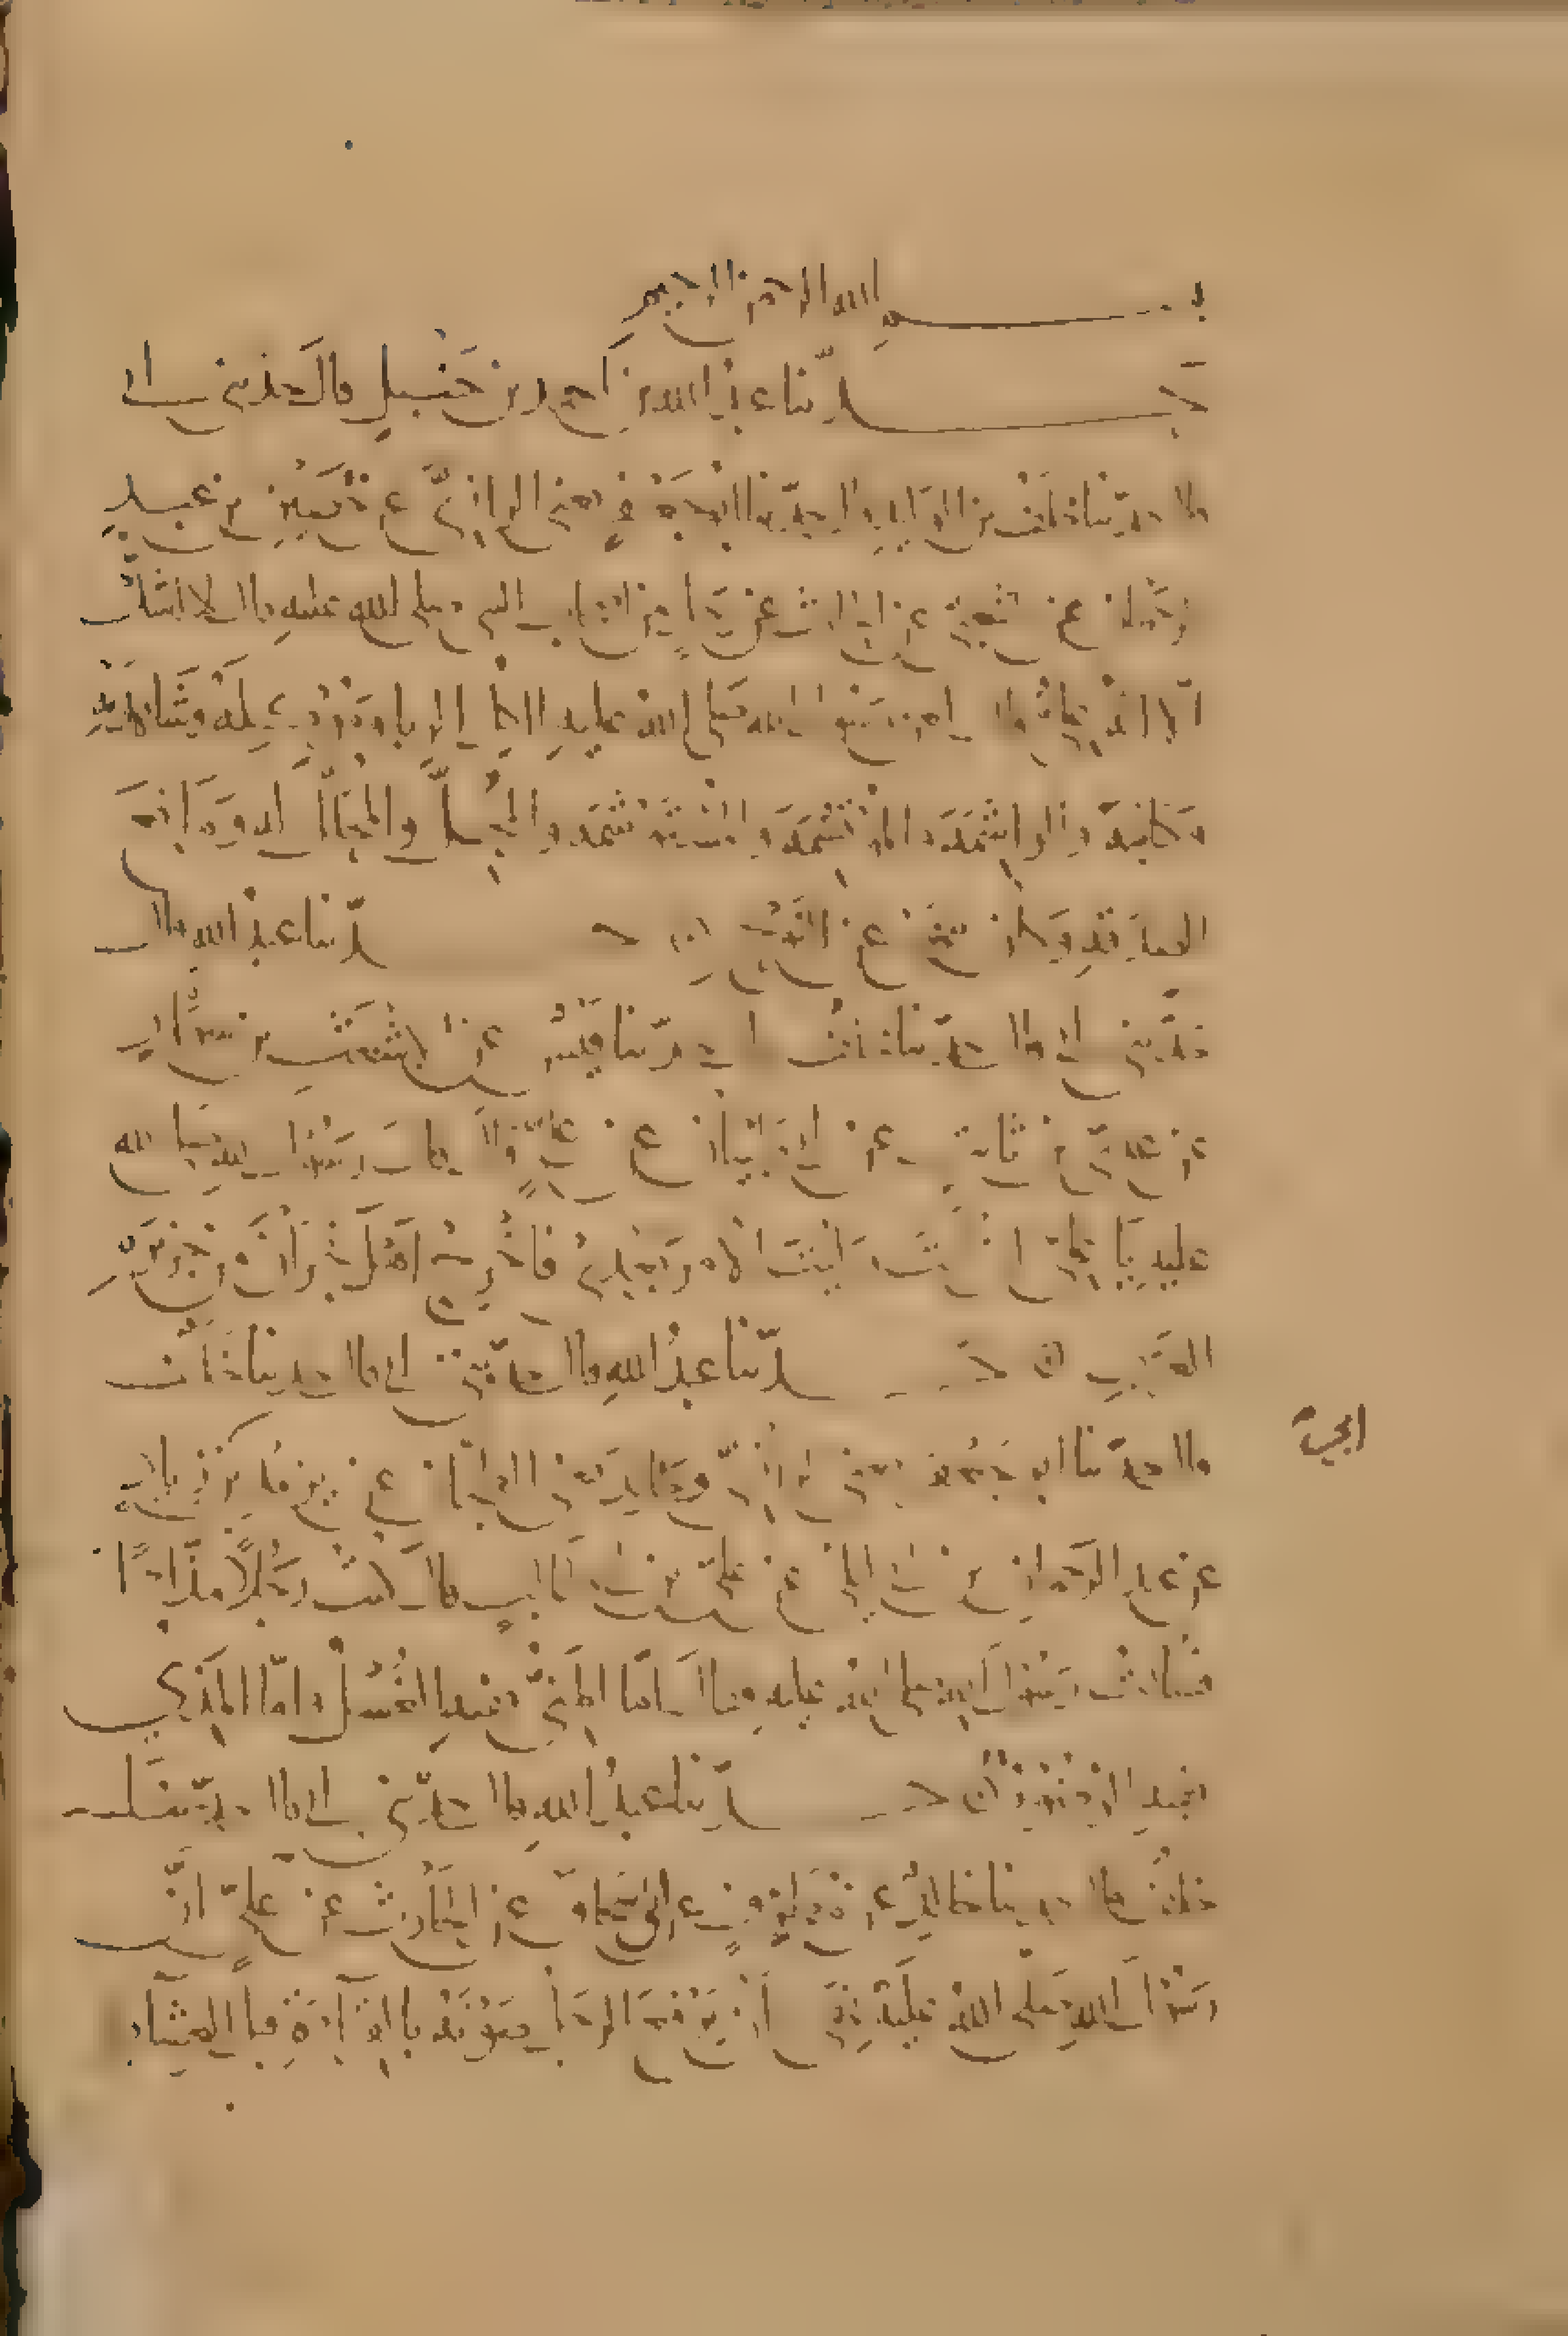 بسم الله الرحمن الرحيم
حدثنا عبد الله بن احمد بن حنبل قال حدثني ابي
قال حدثنا خلف بن الوليد قال حدثنا ابو جعفر يعني الرازي عن حصين بن عبد
الرحمن عن الشعبي عن الحارث عن رجل من اصحاب النبي صلى الله عليه قال لا اشك
الا انه علي قال لعن رسول الله صلى الله عليه اكل الربا وموكله وشاهديه
وكاتبه والواشمة والمستوشمة والمحل والمحلل له ومانع
الصدقة وكان ينهى عن النوح
حدثنا عبد الله قال
حدثني ابي قال حدثنا خلف حدثنا قيس عن الاشعث بن سوار
عن عدي بن ثابت عن ابي ظبيان عن علي قال قال رسول الله صلى الله
عليه يا علي ان انت وليت الامر بعدي فاخرج اهل نجران من جزيرة
العرب
حدثنا عبد الله قال حدثني ابي قال حدثنا خلف
قال حدثنا ابو جعفر يعني الرازي وخالد يعني الطحان عن يزيد بن ابي زياد
عن عبد الرحمن بن ابي ليلى عن علي بن ابي طالب قال كنت رجلا مذاء
فسالت رسول الله صلى الله عليه فقال اما المني ففيه الغسل واما المذي
ففيه الوضوء
حدثنا عبد الله قال حدثني ابي قال حدثنا
خلف قال حدثنا خالد عن مطرف عن ابي اسحاق عن الحارث عن علي ان
رسول الله صلى الله عليه نهى ان يرفع الرجل صوته بالقراءة قبل العشاء